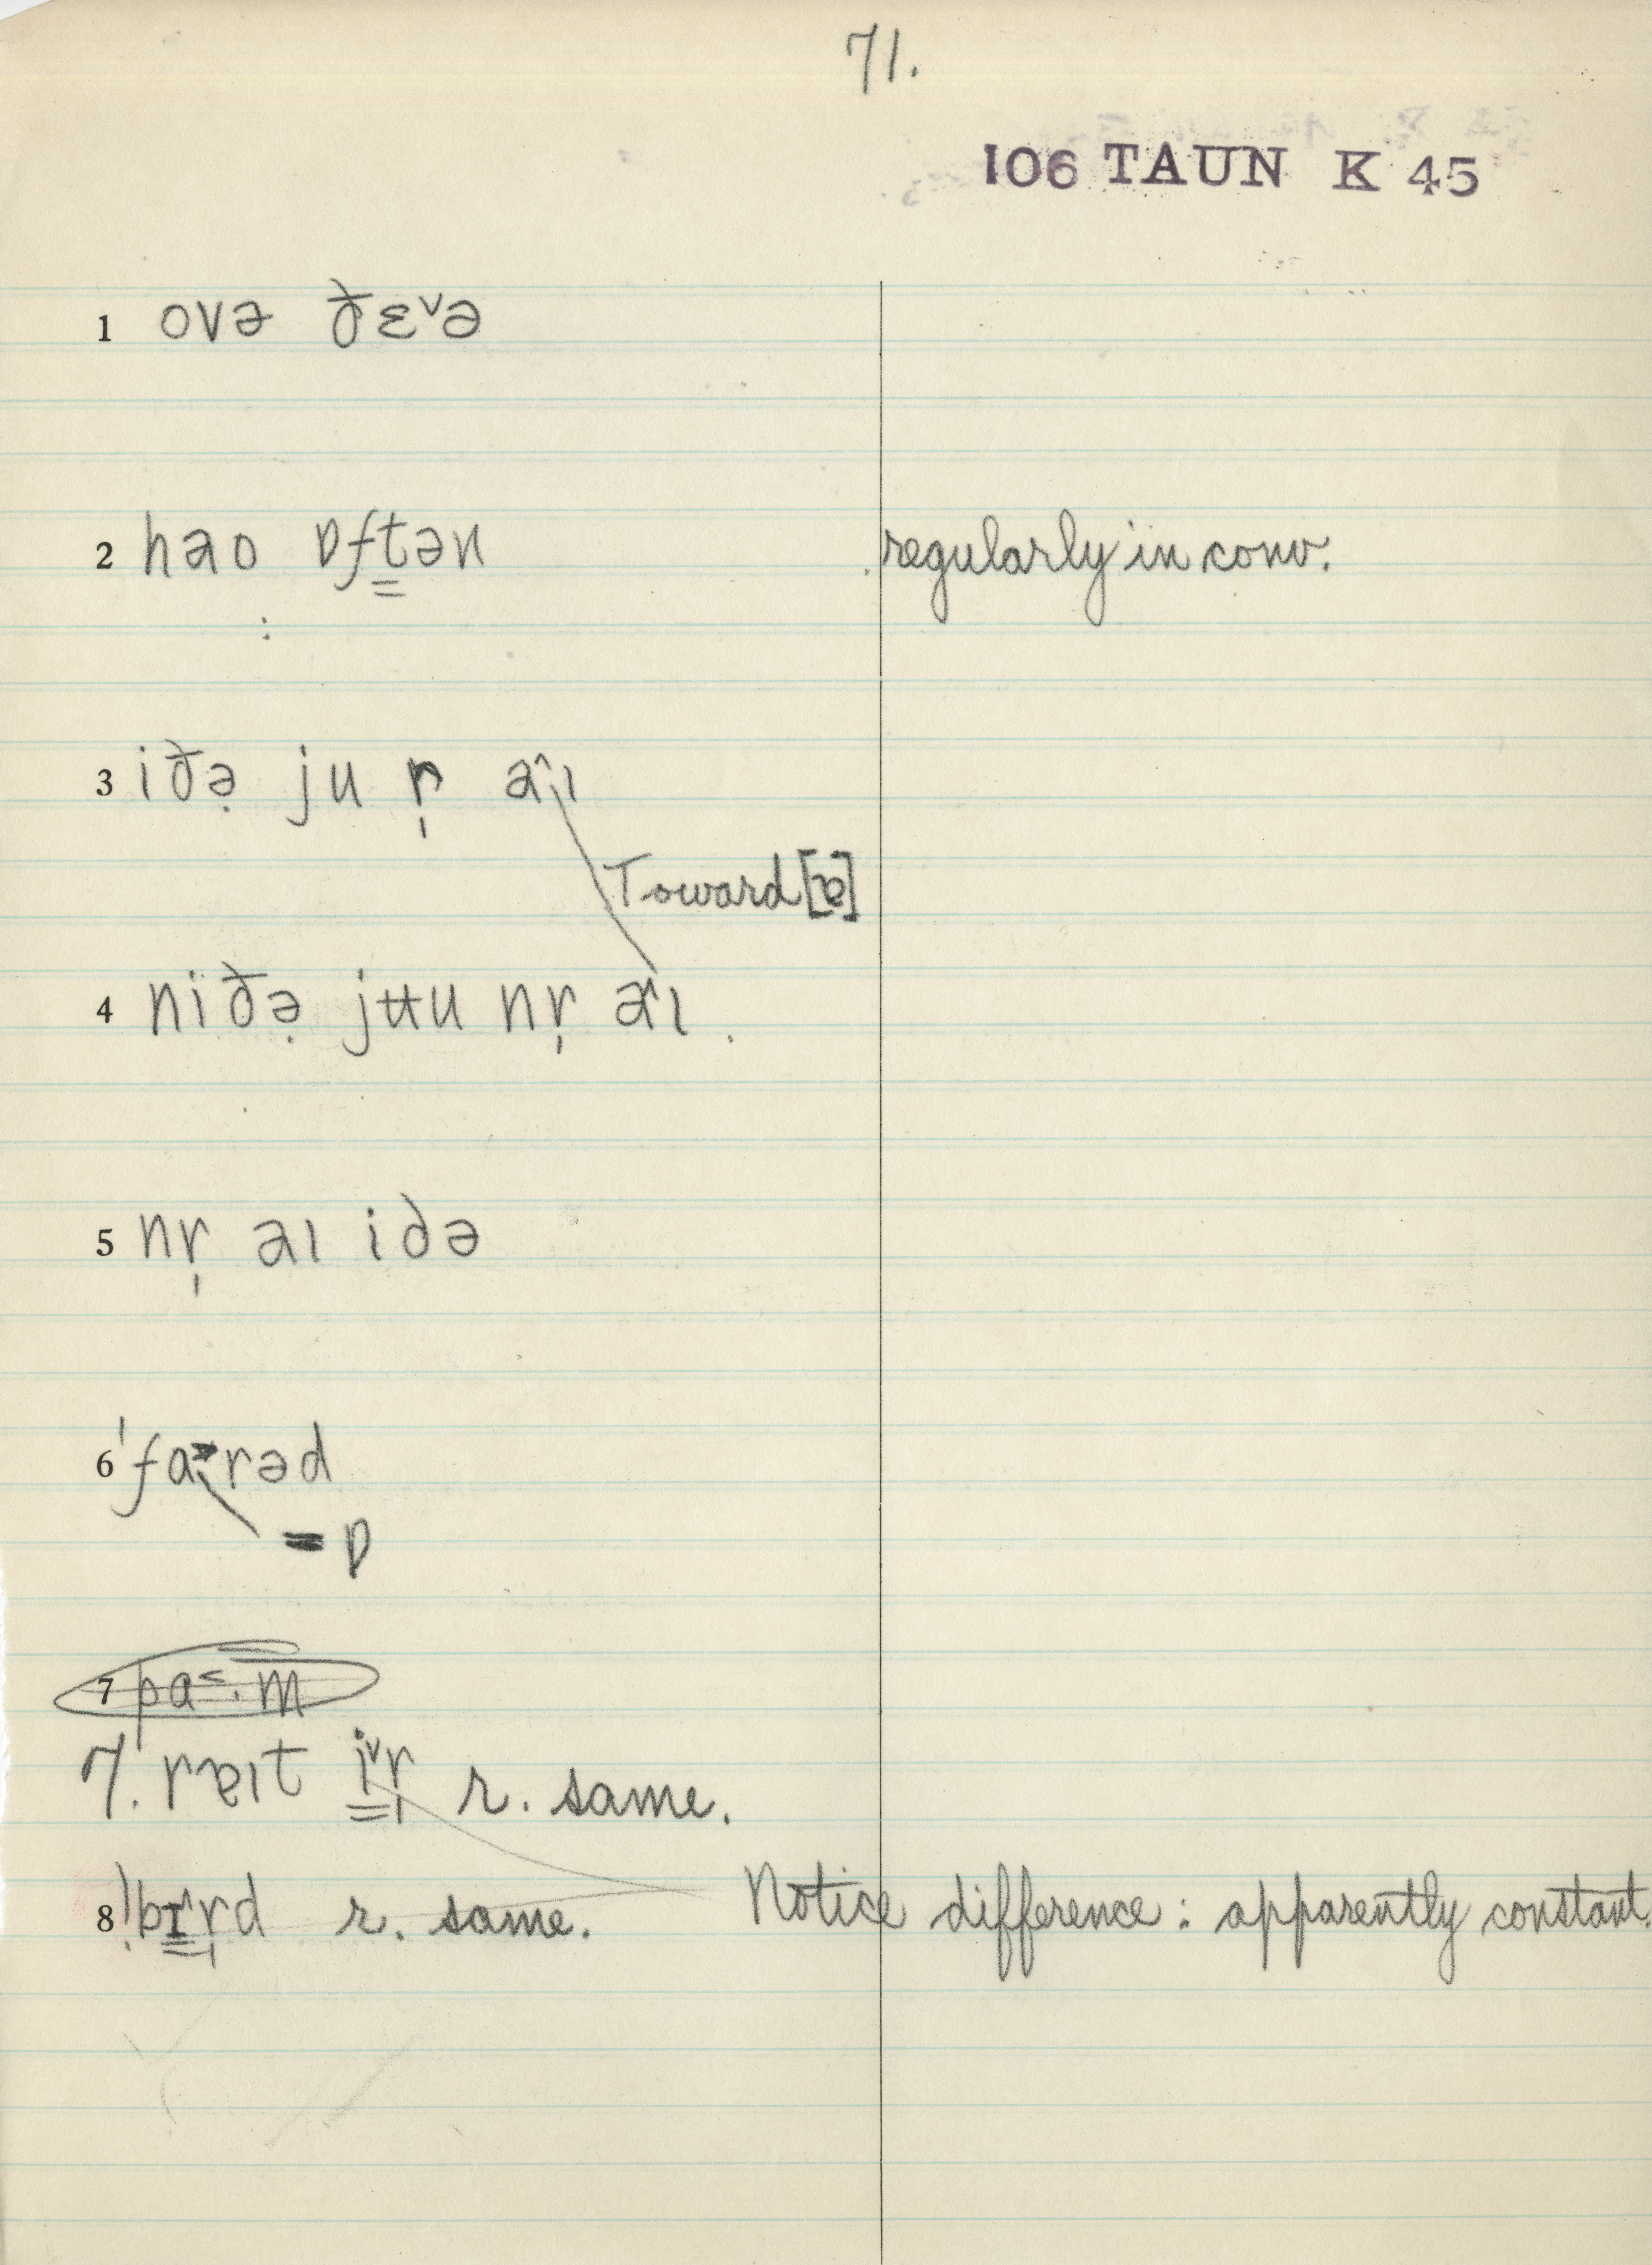 71.
106 TAUN K 45
1 ovə ð̵ɛ˅ə
2 hao ɒft̳ən regularly in conv.
3 iðə̣ ju r̩ a˄ɪ
Toward [ɐ]
4 niðə̣ jʉu nr̩ a˄ɪ
5 nr̩ aɪ idə
6 ˈfa˃rəd
= ɒ
7 pa˂·m
7. rɐɪt i̳˅r̩ r. same.
8 ˈbɪ̳r̩d r. same. Notice difference: apparently constant.